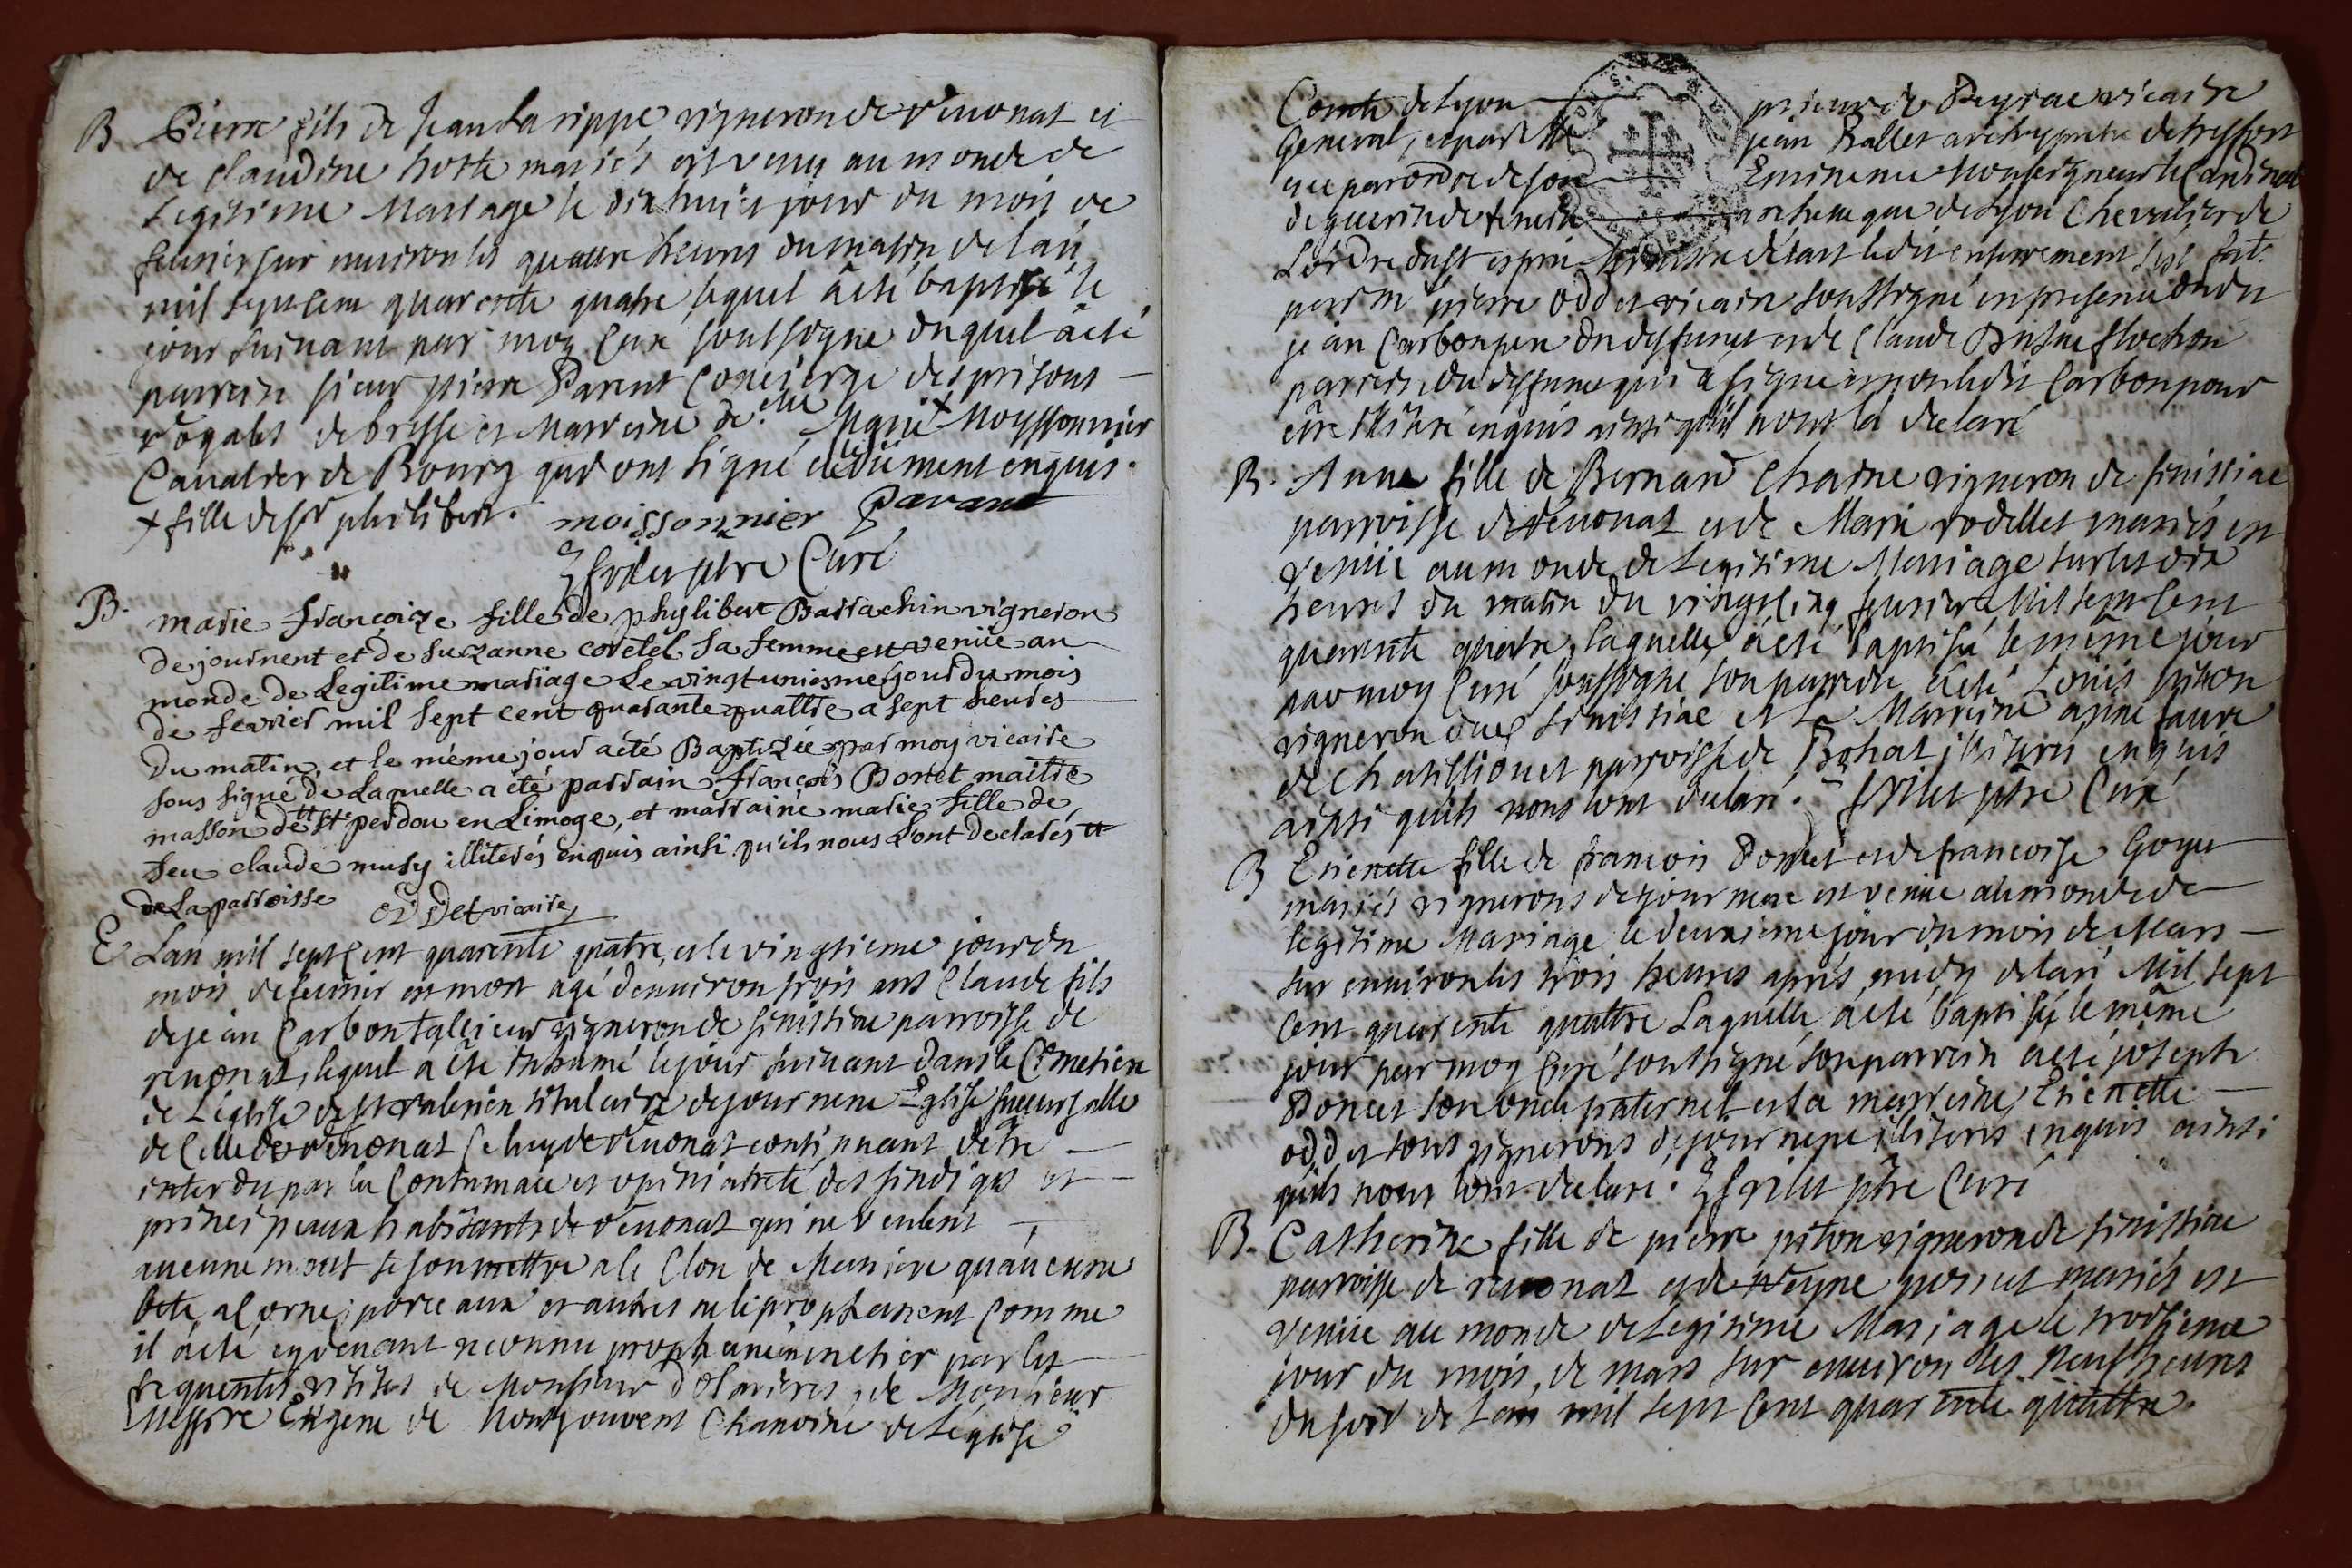 B Pierre fils de Jean Larippe vigneron de revonat et
de claudine hoste mariés est venu au monde de
Legitime Mariage le dixhuit jour du mois de
feurier sur enuiron les quattre heures du matin de lan
mil sept cent quarente quatre lequel à été baptisé le
jour suiuant par moy Curé soussigné duquel à été
parrein sieur pierre Parent Concierge des prisons
roÿales de bresse et Marreine de.elle Marie + Moyssonnier
Caualier de Bourg qui ont signé de ce düement enquis.
+ fille de sr philibert. moissonnier Parant
ptre Curé
B. marie françoize fille de phylibert Barrachin vigneron
de journent et de suzanne coretel sa femme est venüe au
monde de Legitime mariage Le vingtuniesme jour du mois
de fevrier mil sept cent quarante quattre a sept heures
du matin, et le même jour a été Baptizée par moy vicaire
sous signé de Laquelle a été parrain françois Bonet maitre
masson de st perdou en Limoge, et marraine marie fille de
feu claude musy illiterés enquis ainsi qu'ils nous L'ont declarés
de La parroisse oddet vicaire
E Lan mil sept cent quarente quatre, et le vingtieme jour du
mois de feurier est mort agé denuiron trois ans Claude fils
de jean Carbon tallieur vigneron de sinissiac parroisse de
revonat, lequel a été inhumé le jour suiuant dans le Cimetiere
de Léglise de st valerien titulaire de journens Eglise succursalle
de celle de revonat Celuy de revonat continuant détre
interdit par la Contumace et opiniatreté des sindiqs et
principeaux habitants de revonat qui ne veulent
aucunement se soumettre a le Clore de Maniere quaucune
bete, a corne, porceaux et autres ne le prophanent Comme
il à été cy devant reconnu prophané en entier par les
frequentes visites de Monsieur de Monsieur
Messire Eugene de Montjouvent Chanoine de Léglise
Comte de Lyon prieur de vicaire
General, et par Mre jean Rallet archyprêtre de treffort
et ce par ordre de son Eminence Monseigneur le Cardinal
de guerin de tencin archeueque de Lyon Chevalier de
Lordre du st esprit Ministre détat ledit enterrement s'est fait
par mr pierre oddet vicaire soussigné en presence dudit
jean Carbon pere du deffunct et de Claude
parrein du deffunct qui a signé et non ledit Carbon pour
être illitéré enquis ainsi quil nous la declaré
B. Anne fille de Bernard Charne vigneron de sinissiac
parroisse de revonat et de Marie rodillet mariés est
venüe au monde de Legitime Mariage sur les dix
heures du matin du vingt cinq feurier Mil sept cent
quarente quatre, laquelle à été baptisée le même jour
par moy Curé soussigné son parrein à été Louis piton
vigneron dud. sinissiac et la Marreine anne faure
de chatillionet parroisse de Bohat illiterés enquis
ainsi quils nous lont déclaré. ptre Curé
B Etienette fille de francois Doncet et de francoise Goyet
mariés vignerons de journens est venüe au monde de
legitime Mariage le deuxieme jour du mois de Mars
sur enuiron les trois heures aprés midy de lan Mil sept
cent quarente quattre Laquelle à été baptisée le même
jour par moy Curé soussigné son parrein à été joseph
Doncet son oncle paternel et la marreine, Etienette
oddet tous vignerons de journens illiterés enquis ainsi
quils nous lont declaré. ptre Curé
B. Catherine fille de pierre piton vigneron de sinissiac
parroisse de revonat et de mariés est
venüe au monde de Legitime Mariage le troisieme
jour du mois, de mars sur enuiron les neuf heures
du soir de Lan mil sept cent quarente quattre.